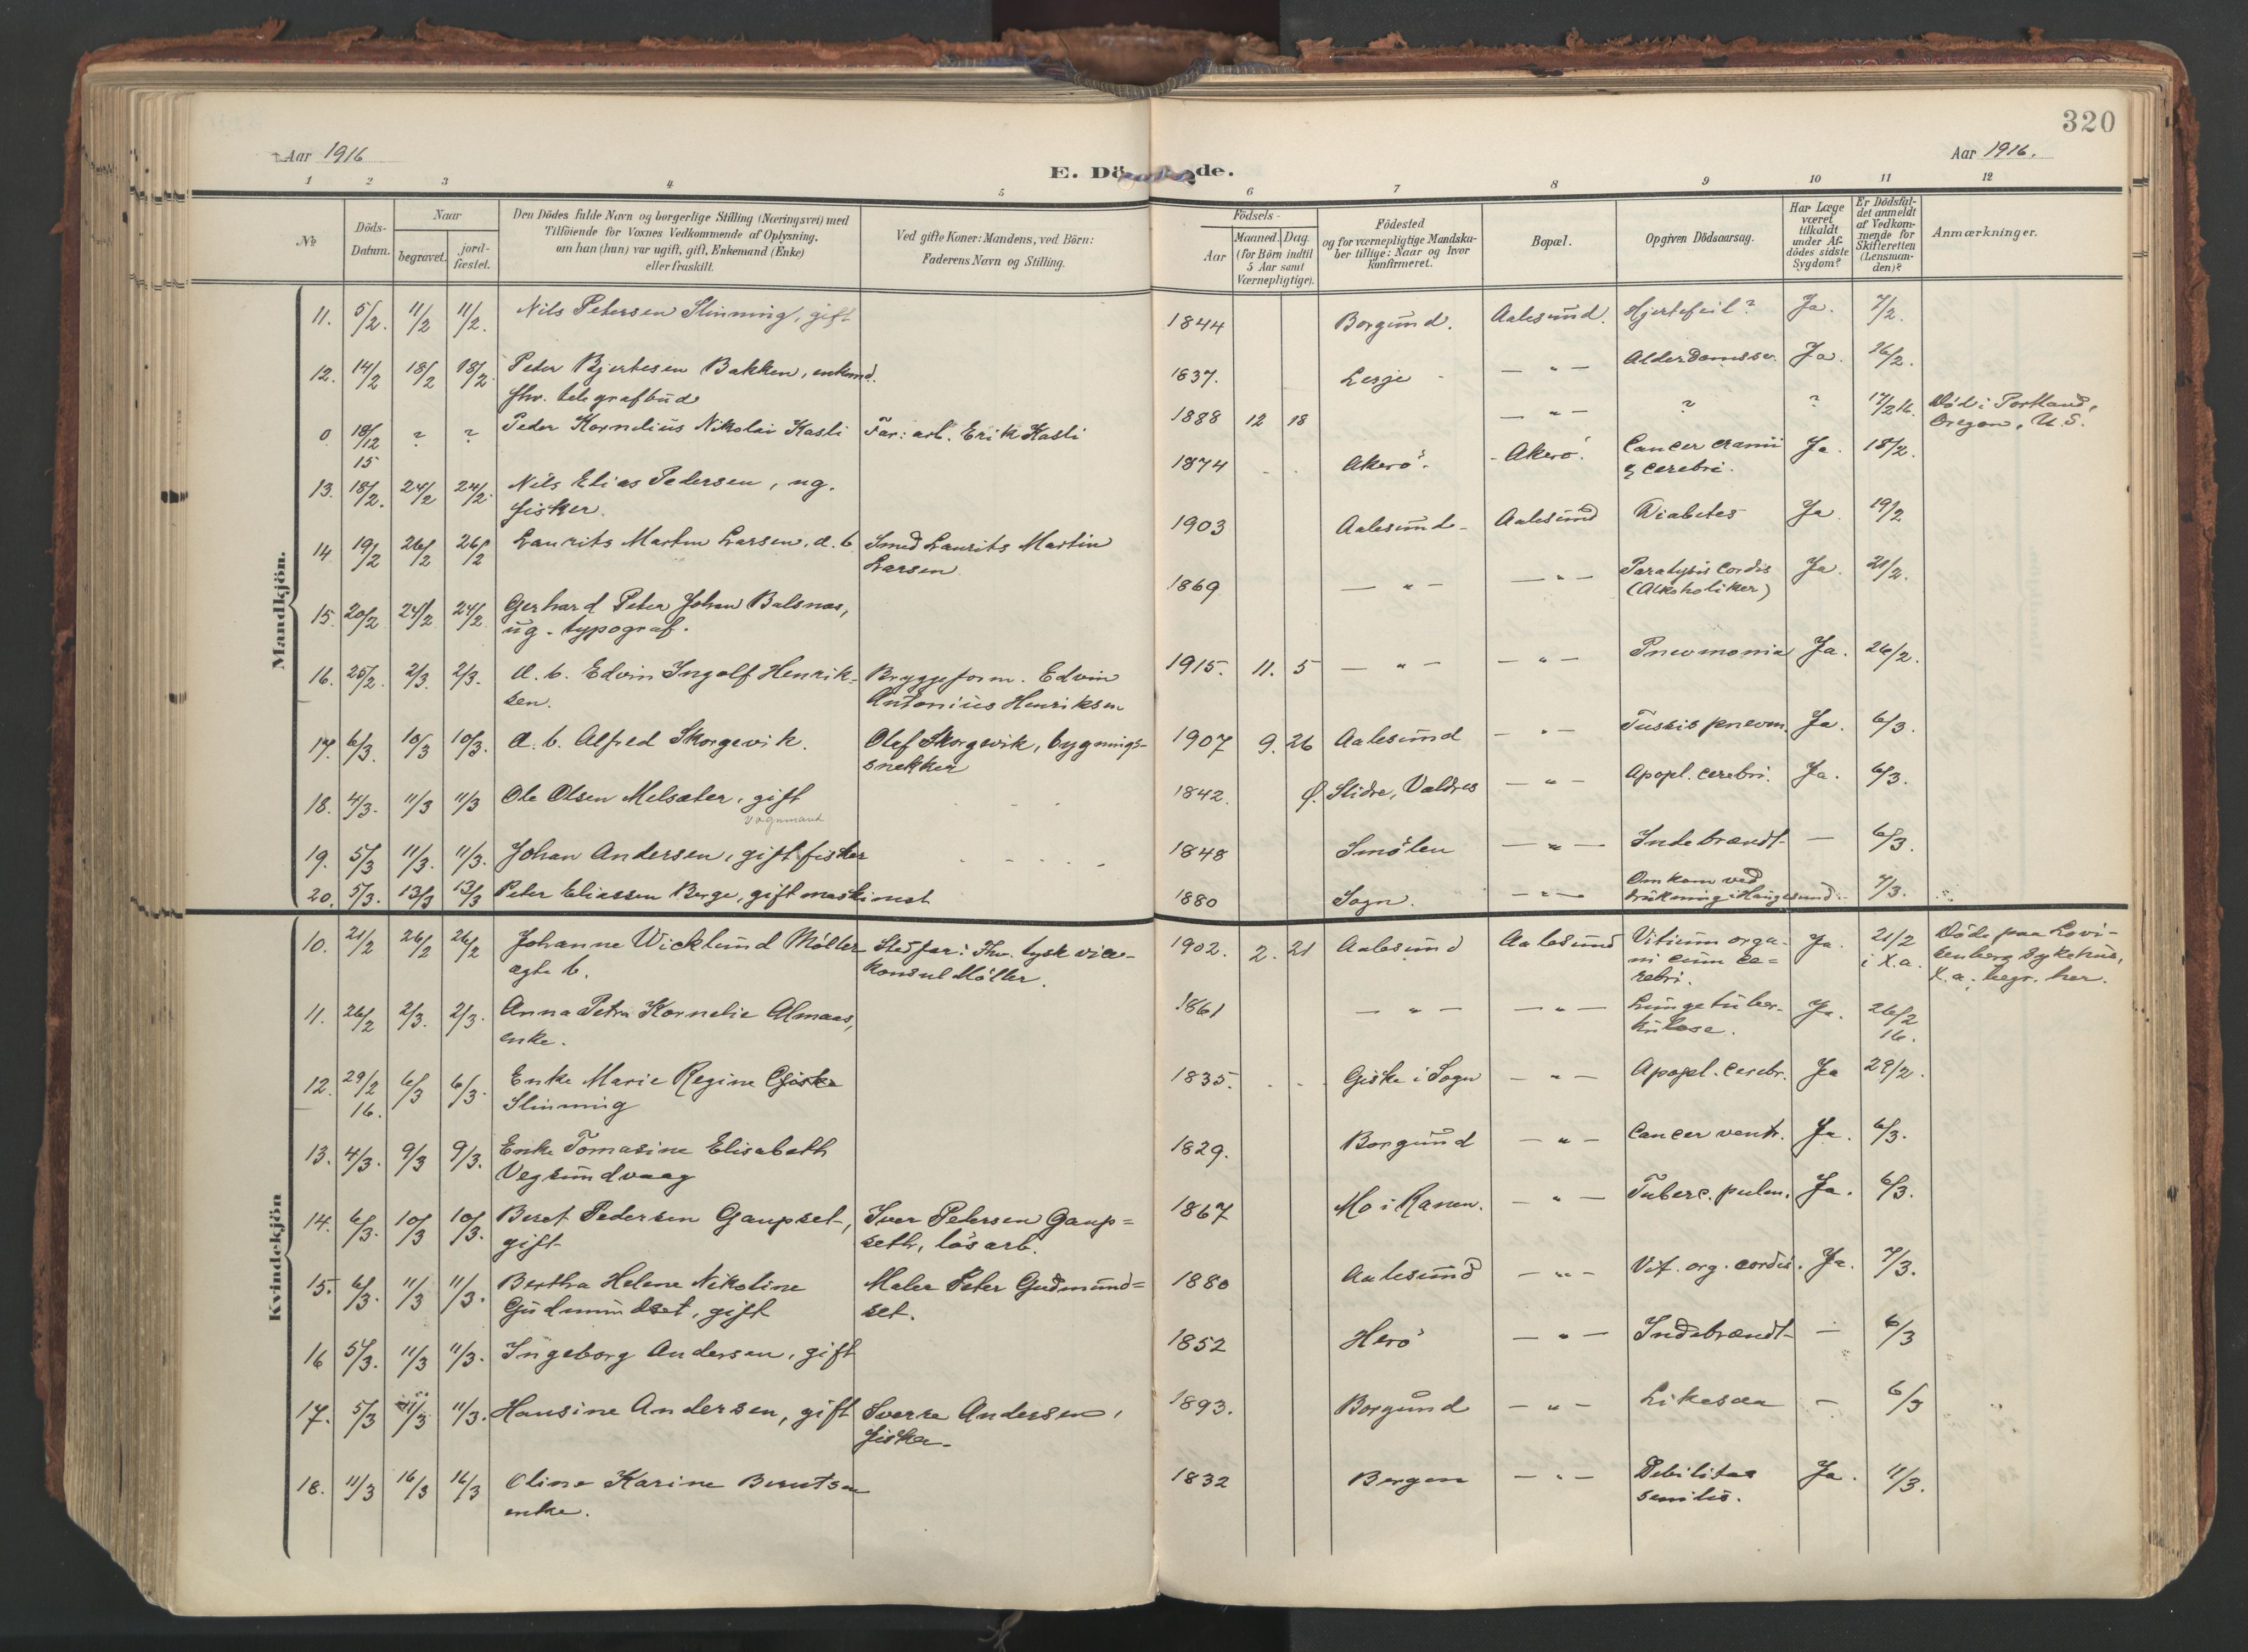 320
Aar 1916
E. Dö de.
Aar 1916.
1 2 3 4 5 6 7 8 9 10 11 12
No
Döds-Datum.
Naar
begravet.
jord-fæstet.
Den Dödes fulde Navn og borgerlige Stilling (Næringsvei) med
Tilföiende for Voxnes Vedkommende af Oplysning,
om han (hun) var ugift, gift, Enkemand (Enke)
eller fraskilt.
Ved gifte Koner: Mandens, ved Börn:
Faderens Navn og Stilling.
Födsels-
Aar
Maaned. Dag.
(for Börn indtil
5 Aar samt
Værnepligtige).
Födested
og for værnepligtige Mandska-
ber tillige: Naar og hvor
konfirmeret.
Bopæl.
Opgiven Dödsaarsag.
Har Læge
været
tilkaldt
under Af-
dödes sidste
Sygdom?
Er Dödsfal-
det anmeldt
af Vedkom-
mende for
Skifteretten
(Lensman-
den)?
Anmærkninger.
Mandkjön.
11. 5/2. 11/2 11/2. Nils Petersen Slinning, gift 1844 Borgund. Aalesund. Hjertefeil? Ja. 7/2.
12. 14/2 18/2 18/2. Peter Bjertesen Bakken, enkemd. 1837. Lesje — " — Alderdomssv. Ja. 26/2.
fhv. telegrafbud
0. 18/12 15 ? ? Peder Kornelius Nikolai Hasli Far: arb. Erik Hasli 1888 12 18 — " — ? ? 17/2 16. Död i Portland,
Oregon, U.S.
13. 18/2. 24/2 24/2. Nils Elias Pedersen, ug. 1874 Akerö. Akerö. Cancer cranii Ja. 18/2.
fisker. & cerebri.
14 19/2 26/2 26/2 Laurits Martin Larsen, æ. b. Smed Laurits Martin 1903 Aalesund. Aalesund Diabetes Ja 19/2
Larsen
15. 20/2 24/2 24/2 Gerhard Peter Johan Balsnes, 1869 — " — — " — Paralysis cordis Ja. 21/2.
ug. typograf. (Alkoholiker)
16. 25/2. 2/3. 2/3. Æ. b. Edvin Ingolf Henrik- Bryggeform. Edvin 1915. 11. 5 — " — — " — Pneumonia Ja. 26/2.
sen. Antonius Henriksen
17. 6/3. 10/3 10/3. Æ. b. Alfred Skorgevik. Olaf Skorgevik, bygnings- 1907 9. 26 Aalesund — " — Tussis pneum. Ja. 6/3.
snekker
18. 4/3. 11/3 11/3 Ole Olsen Melsæter, gift 1842. Ø. Slidre, Valdres — " — Apopl. cerebri. Ja. 6/3.
vognmand
19. 5/3 11/3. 11/3. Johan Andersen, gift fisker 1848 Smölen — " — Indebrændt — 6/3.
20. 5/3. 13/3 13/3 Peter Eliassen Berge, gift maskinist 1880 Sogn. — " — Omkom ved
drukning i Haugesund. 7/3.
Kvindekjön
10. 21/2 26/2 26/2 Johanne Wicklund Möller Stedfar: Fhv. tysk vice- 1902. 2. 21 Aalesund Aalesund Vitium orga- Ja. 21/2 Döde paa Lovi-
ægte b. konsul Möller. ni cum ce- i X.a. senberg Sykehus,
rebri. X.a., begr. her.
11. 26/2 2/3. 2/3. Anna Petra Kornelie Almaas, 1861 — " — — " — Lungetuber- Ja. 26/2
enke. kulose. 16.
12. 29/2 16. 6/3 6/3. Enke Marie Regine Giske 1835. Giske i Sogn — " — Apopl. cerebr. Ja 29/2.
Slinning
13. 4/3. 9/3 9/3. Enke Tomasine Elisabeth 1829. Borgund — " — Cancer ventr. Ja. 6/3.
Vegsundvaag
14. 6/3. 10/3 10/3. Beret Pedersen Gaupset, Iver Petersen Gaup= 1867 Mo i Ranen. — " — Tuberc. pulm. Ja. 6/3.
gift seth, lösarb.
15. 6/3. 11/3 11/3. Bertha Helene Nikoline Maler Peter Gudmund= 1880 Aalesund — " — Vit. org. cordis. Ja. 7/3.
Gudmundset, gift set.
16 5/3. 11/3 11/3. Ingeborg Andersen, gift 1852 Herö — " — Indebrændt — 6/3
17. 5/3 11/3 11/3. Hansine Andersen, gift Sverre Andersen, 1893. Borgund — " — Likesaa — 6/3
fisker.
18. 11/3 16/3 16/3 Oline Karine Berntsen 1832 Bergen — " — Debilitas Ja. 11/3.
enke. senilis.